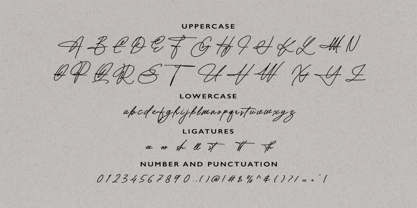 UPPERCASE
A B C D E F G H I J K L M N
O P Q R S T U V W X Y Z
LOWERCASE
abcdefghijklmnopqrstuvwxyz
LIGATURES
NUMBER AND PUNCTUATION